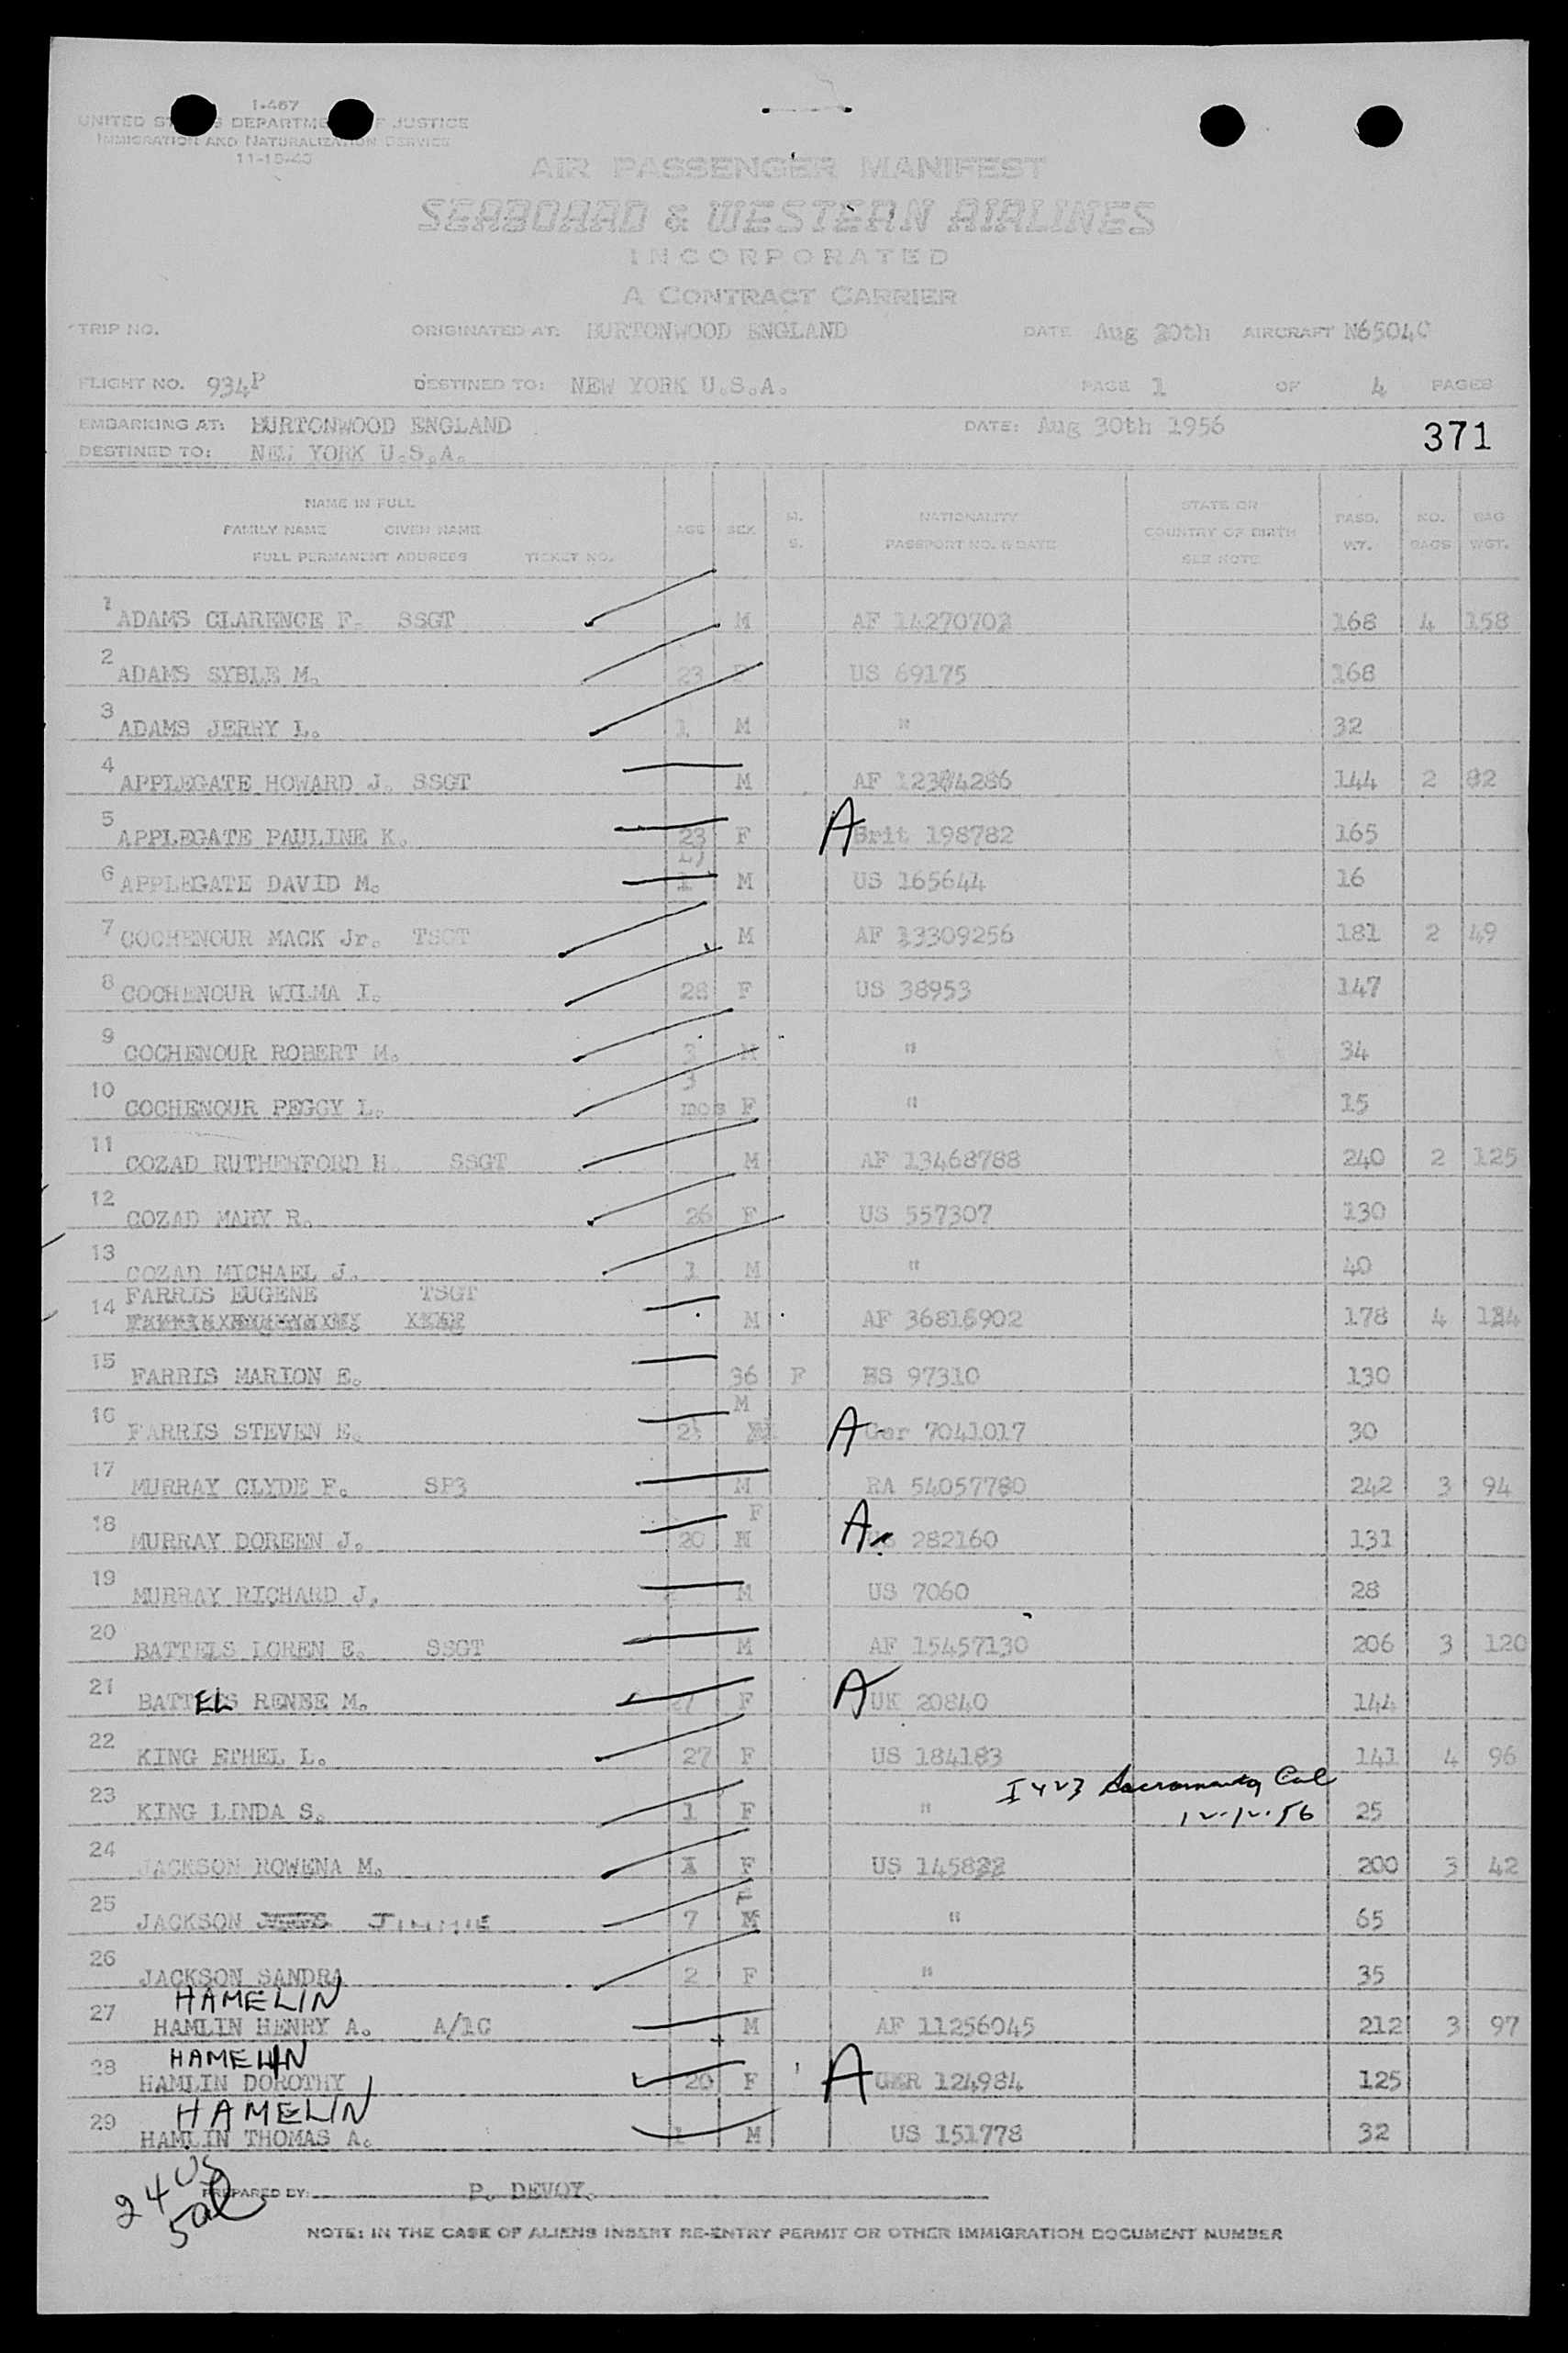 I-467
UNITED STATES DEPARTMENT OF JUSTICE
IMMIGRATION AND NATURALIZATION SERVICE
AIR PASSENGER MANIFEST
SEABOARD & WESTERN AIRLINES
INCORPORATED
A CONTRACT CARRIER
TRIP NO. ORIGINATED AT: BURTONWOOD ENGLAND DATE Aug 30th AIRCRAFT N6504C
FLIGHT NO. 934P DESTINED TO: NEW YORK U.S.A. PAGE 1 OF 4 PAGES
EMBARKING AT: BURTONWOOD ENGLAND DATE: Aug 30th 1956 371
DESTINED TO: NEW YORK U.S.A.
NAME IN FULL
FAMILY NAME GIVEN NAME
FULL PERMANENT ADDRESS TICKET NO.
AGE SEX M. S. NATIONALITY PASSPORT NO. & DATE STATE OR COUNTRY OF BIRTH SEE NOTE PASS. WT. NO. BAGS BAG WGT.
1 ADAMS CLARENCE F. SSGT M AF 14270702 168 4 158
2 ADAMS SYBLE M. 23 F US 69175 168
3 ADAMS JERRY L. 1 M " 32
4 APPLEGATE HOWARD J. SSGT M AF 12374286 144 2 82
5 APPLEGATE PAULINE K. 23 F A Brit 198782 165
6 APPLEGATE DAVID M. 1 M US 165644 16
7 COCHENOUR MACK Jr. TSGT M AF 13309256 181 2 49
8 COCHENOUR WILMA I. 28 F US 38953 147
9 COCHENOUR ROBERT M. 3 M " 34
10 COCHENOUR PEGGY L. 3 mos F " 15
11 COZAD RUTHERFORD H. SSGT M AF 13468788 240 2 125
12 COZAD MARY R. 26 F US 557307 130
13 COZAD MICHAEL J. 1 M " 40
14 FARRIS EUGENE TSGT M AF 36816902 178 4 134
15 FARRIS MARION E. 36 F BS 97310 130
16 FARRIS STEVEN E. 2½ M A Ger 7041017 30
17 MURRAY CLYDE F. SP3 M RA 54057780 242 3 94
18 MURRAY DOREEN J. 20 F A 282160 131
19 MURRAY RICHARD J. M US 7060 28
20 BATTELS LOREN E. SSGT M AF 15457130 206 3 120
21 BATTELS RENEE M. 27 F A UK 20840 144
22 KING ETHEL L. 27 F US 184183 141 4 96
23 KING LINDA S. 1 F " I 423 Sacramento Cal 12-12-56 25
24 JACKSON ROWENA M. F US 145832 200 3 42
25 JACKSON JIMMIE 7 F M " 65
26 JACKSON SANDRA 2 F " 35
HAMELIN
27 HAMLIN HENRY A. A/1C M AF 11256045 212 3 97
HAMELIN
28 HAMLIN DOROTHY 20 F A GER 124984 125
HAMELIN
29 HAMLIN THOMAS A. 1 M US 151778 32
24 US
5 al
PREPARED BY: P. DEVOY.
NOTE: IN THE CASE OF ALIENS INSERT RE-ENTRY PERMIT OR OTHER IMMIGRATION DOCUMENT NUMBER